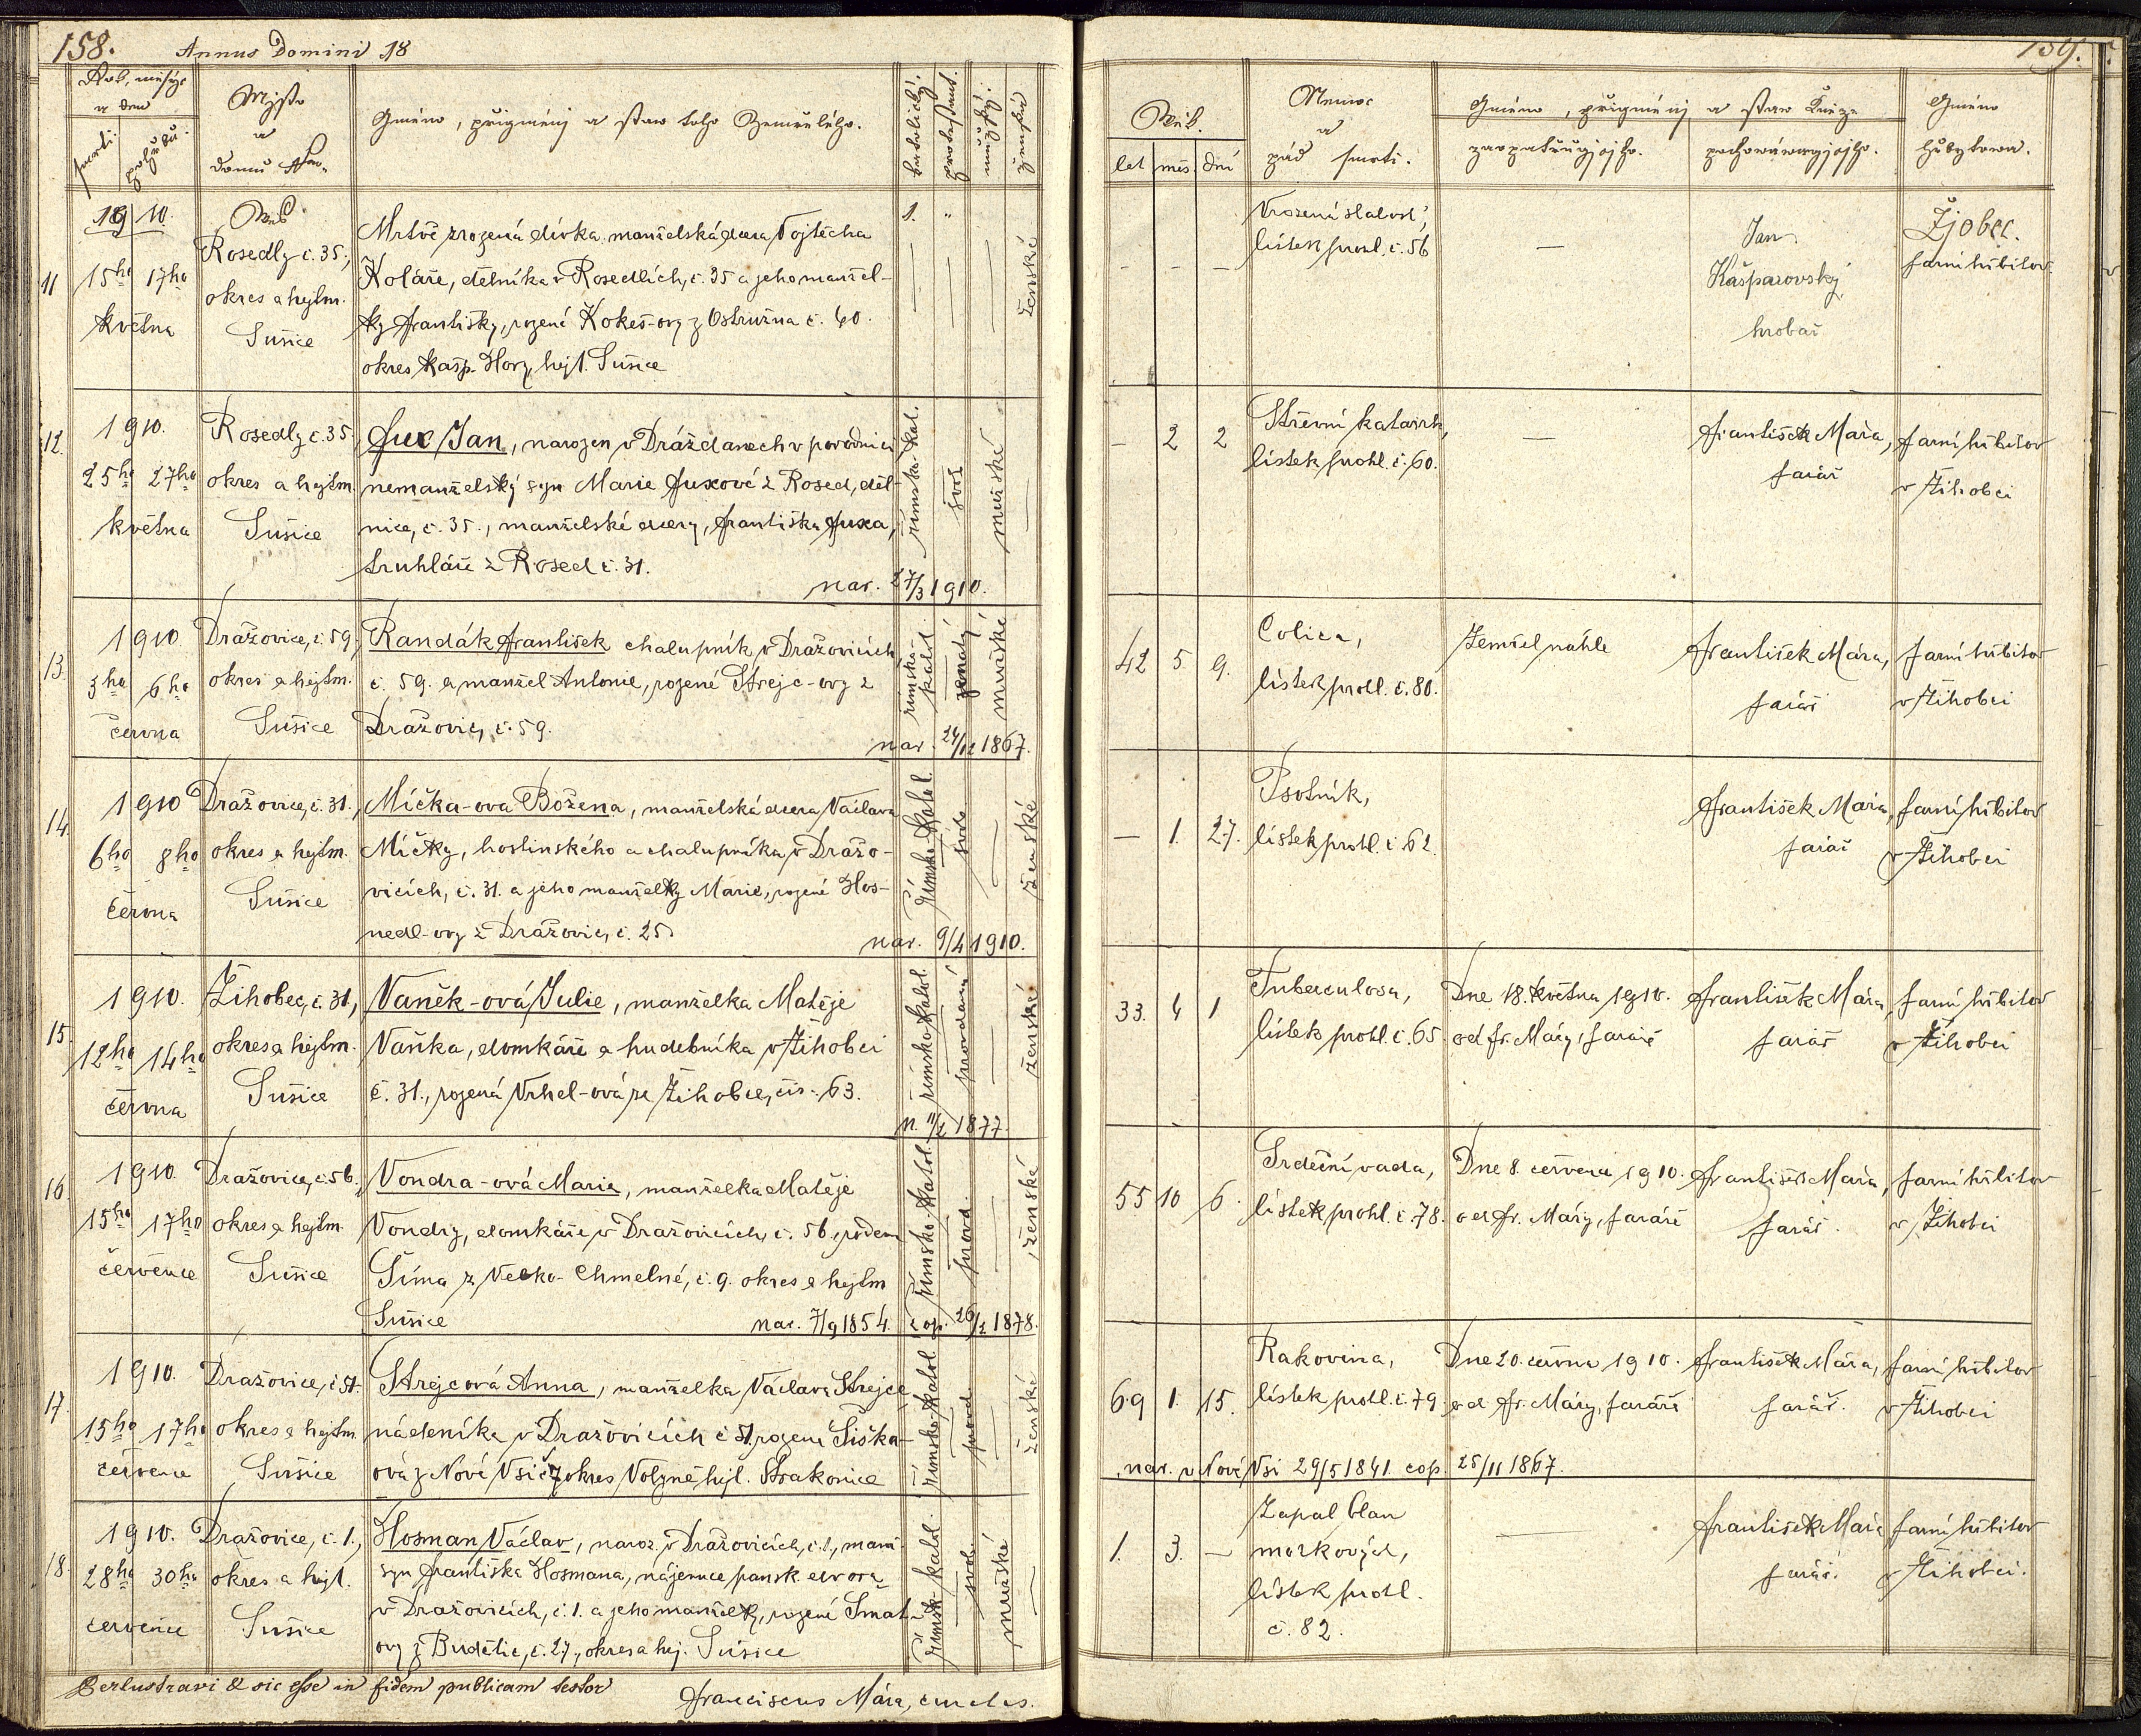 158. Annus Domini 18
Rok, měsýc
a den
smrti
pohřbu
Mjsto
a
domu
Gméno, přigménj a staw toho Zemřelého.
katolický.
protestant.
mužský.
ženská
1910.
Ves
11
15ho 17ho
května
Rosedly č. 35,
okres a hejtm.
Sušice
Mrtvě zrozená dívka, manželská dcera Vojtěcha
Koláře, dělníka v Rosedlích, č. 35 a jeho manžel-
ky Františky, rozené Kokeš-ovy z Ostružna č. 40.
okres Kašp. Hory, hejt. Sušice
1. "
ženské
12.
1910.
25ho 27ho
května
Rosedly č. 35,
okres a hejtm.
Sušice
Fux Jan, narozen v Drážďanech v porodnici
nemanželský syn Marie Fuxové z Rosed, děl-
nice, č. 35., manželské dcery, Františka Fuxa,
truhláře z Rosed č. 31.
nar. 27/3 1910.
římsko-kat.
svob.
mužské
13.
1910
3ho 6ho
června
Dražovice, č. 59,
okres a hejtm.
Sušice
Randák František chalupník v Dražovicích,
č. 59. a manžel Antonie, rozené Strejc-ovy z
Dražovic, č. 59.
nar. 24/12 1867.
římsko-katol.
ženatý
mužské
14.
1910
6ho 8ho
června
Dražovice, č. 31.,
okres a hejtm.
Sušice
Míčka-ova Božena, manželská dcera Václava
Míčky, hostinského a chalupníka v Dražo-
vicích, č. 31. a jeho manželky Marie, rozené Hos-
nedl-ovy z Dražovic, č. 25
nar. 9/4 1910.
římsko-katol.
svob.
ženské
15.
1910.
12ho 14ho
června
Žihobec, č. 31,
okres a hejtm.
Sušice
Vaněk-ová Julie, manželka Matěje
Vaňka, domkáře a hudebníka v Žihobci
č. 31., rozená Vrhel-ová ze Žihobce, čís. 63.
n. 11/2 1877.
římsko-katol.
provdaná
ženské
16.
1910.
15ho 17ho
července
Dražovice, č. 56.
okres a hejtm.
Sušice
Vondra-ová Marie, manželka Matěje
Vondry, domkáře v Dražovicích, č. 56., rodem
Šíma z Velko-Chmelné, č. 9. okres a hejtm
Sušice
nar. 7/9 1854. cop. 26/2 1878.
římsko-katol.
provd.
ženské
17.
1910.
15ho 17ho
července
Dražovice, č 51.
okres a hejtm.
Sušice
Strejcová Anna, manželka Václava Strejce
nádeníka v Dražovicích č 51. rozená Šiška-
ová z Nové Vsi č 7 okres Volyně hejt. Strakonice
římsko-katol.
provd.
ženské
18.
1910.
28ho 30ho
července
Dražovice, č. 1.,
okres a hejt.
Sušice
Hosman Václav, naroz. v Dražovicích, č. 1., manž.
syn Františka Hosmana, nájemce pansk. dvora
v Dražovicích, č. 1. a jeho manželky, rozené Smat-
ovy z Budětic, č. 27., okres a hej. Sušice
římsk.-katol.
svob.
mužské
Perlustravi & sic esse in fidem publicam testor
Franciscus Mára, curatus.
159.
Věk.
let měs. dní
Nemoc
a
pád smrti.
Gméno, přigménj a staw Kněze
zaopatřugjcjho.
pochowáwagjcjho.
Gméno
hřbytowa.
Vrozená slabost,
lístek prohl. č. 56
Jan
Kašparovský
hrobař
Žjobec.
farní hřbitov
– 2 2
Střevní katarrh,
lístek prohl. č. 60.
František Mára,
farář
farní hřbitov
v Žihobci
42 5 9.
Colica,
lístek prohl. č. 80.
Zemřel náhle
František Mára,
farář
farní hřbitov
v Žihobci
– 1. 27.
Psotník,
lístek prohl. č 62.
František Mára,
farář
farní hřbitov
v Žihobci
33. 4 1
Tuberculosa,
lístek prohl. č. 65.
Dne 18. května 1910.
od Fr. Máry, faráře
František Mára,
farář
farní hřbitov
v Žihobci
55 10 6.
Srdeční vada,
lístek prohl. č. 78.
Dne 8. července 1910.
od Fr. Máry, faráře
František Mára,
farář.
farní hřbitov
v Žihobci
69 1. 15.
Rakovina,
lístek prohl. č. 79.
Dne 20. června 1910.
od Fr. Máry, faráře
František Mára,
farář.
farní hřbitov
v Žihobci
nar. v Nové Vsi 29/5 1841. cop. 25/11 1867.
1. 3. –
Zápal blan
mozkových,
lístek prohl.
č. 82.
František Mára
farář.
farní hřbitov
v Žihobci.